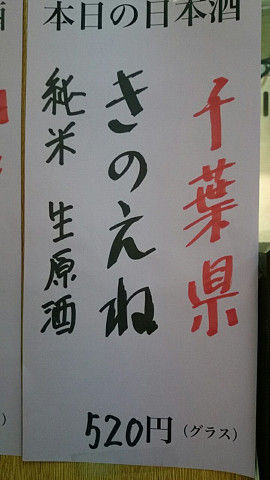 本日の日本酒
千葉県
きのえね
純米 生原酒
520円(グラス)